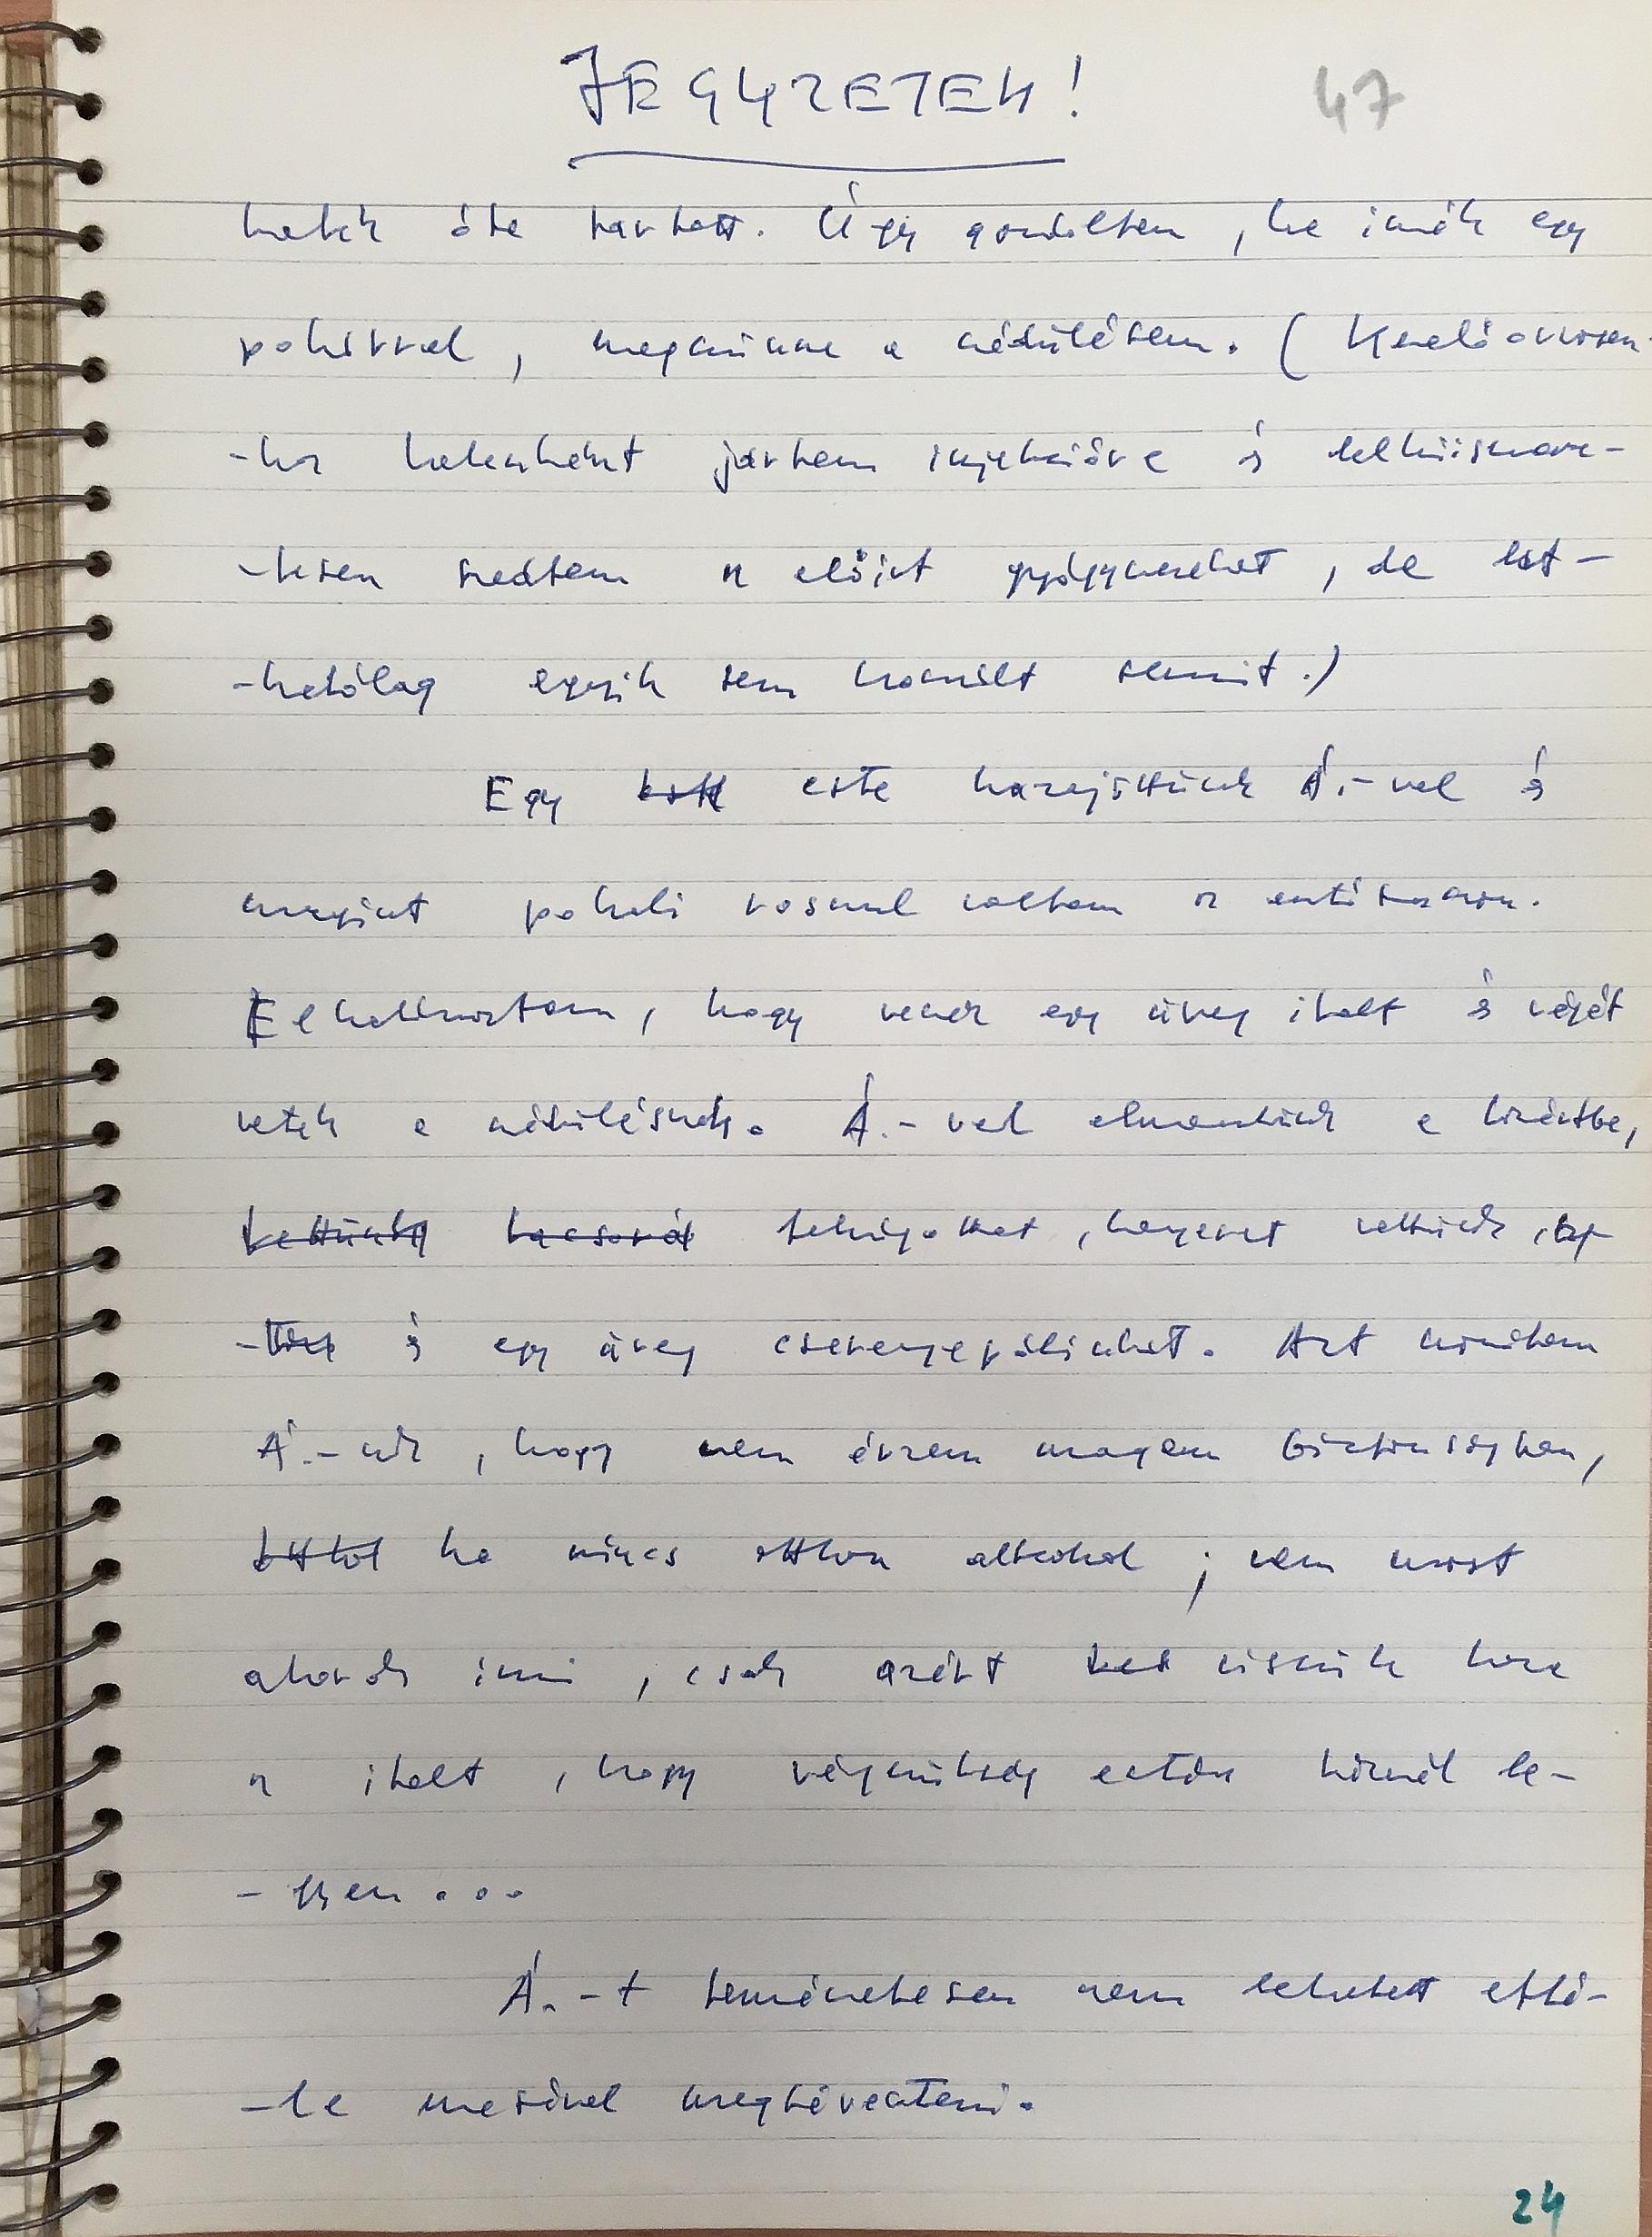 JEGYZETEK!
47
hetek óta tartott. Úgy gondoltam, ha innék egy
pohárral, megszűnne a szédülésem. (Kezelőorvosom-
-hoz hetenként jártam injekcióra és lelkiismere-
-tesen szedtem az előírt gyógyszereket, de lát-
-hatólag egyik sem használt semmit.)
Egy este hazajöttünk Á.-val és
megint pokoli rosszul voltam az autóbuszon.
Elhatároztam, hogy veszek egy üveg italt és végét
vetek a szédülésnek. Á.-val elmentünk a közértbe,
vettünk vacsorát felvágottat, kenyeret vettünk,
és egy üveg cseresznyepálinkát. Azt mondtam
Á.-nak, hogy nem érzem magam biztonságban,
ha nincs otthon alkohol; nem most
akarok inni, csak azért viszünk haza
az italt, hogy végszükség esetén kéznél le-
-gyen...
Á.-t természetesen nem lehetett effé-
-le mesével megtéveszteni.
24